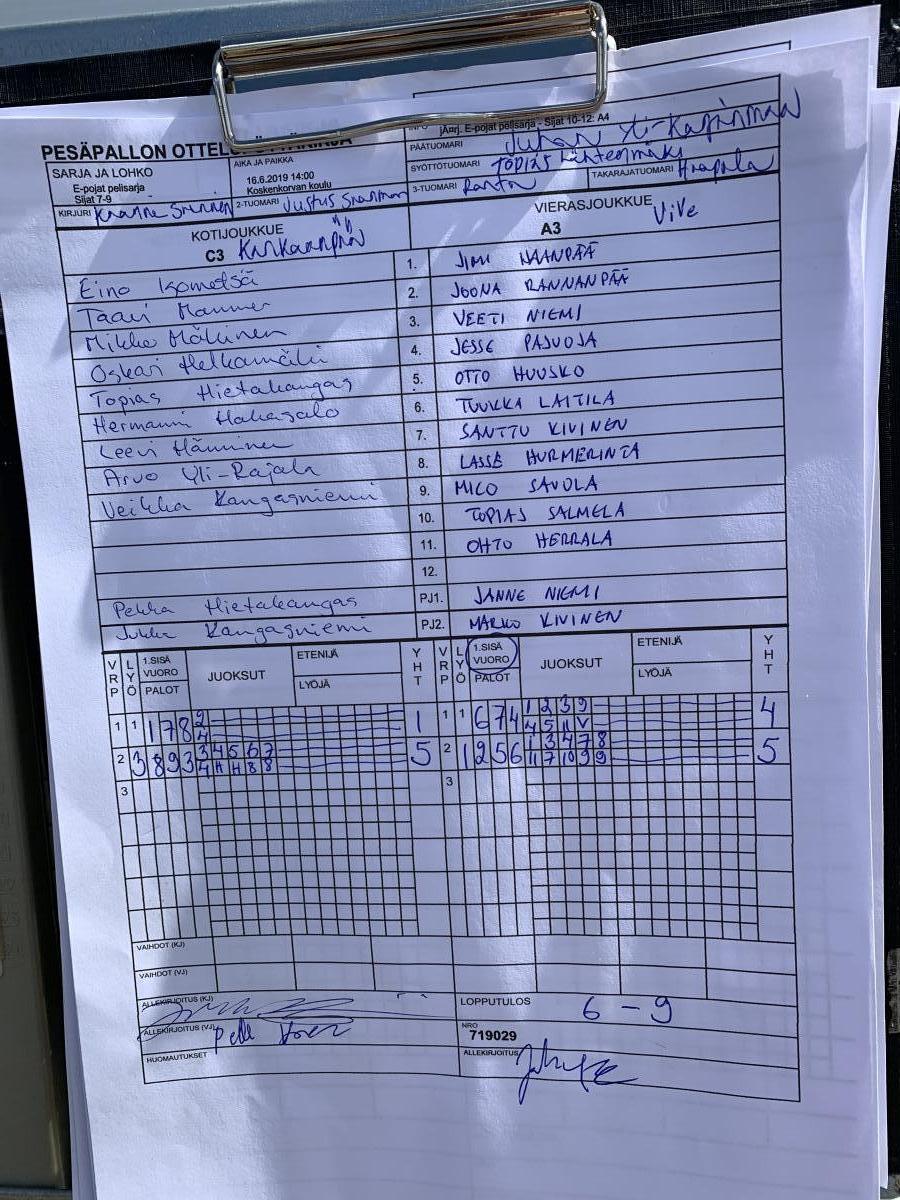 PESÄPALLON OTTEL
INFO jAnrj. E-pojat pelisarja - Sijat 10-12: A4
PÄÄTUOMARI Juhan Yli-Kajinman
SARJA JA LOHKO
E-pojat pelisarja
Sijat 7-9
AIKA JA PAIKKA
16.6.2019 14:00
Koskenkorvan koulu
SYÖTTÖTUOMARI TOPIAS Lähteenmäki
3-TUOMARI Ranta TAKARAJATUOMARI Haapala
KIRJURI 2-TUOMARI Justus
KOTIJOUKKUE
C3 Kankaanpää
VIERASJOUKKUE
A3 ViVe
Eino Isometsä 1. JIMI HAANPÄÄ
Taavi Mannner 2. JOONA RANNANPÄÄ
Mikko Mäkinen 3. VEETI NIEMI
Oskari Helkamäki 4. JESSE PAJUOJA
Topias Hietakangas 5. OTTO HUUSKO
Hermanni Hakasalo 6. TUUKKA LAITILA
Leevi Hänninen 7. SANTTU KIVINEN
Arvo Yli-Rajala 8. LASSE HURMERINTA
Veikka Kangasniemi 9. MICO SAVOLA
10. TOPIAS SALMELA
11. OHTO HERRALA
12.
Pekka Hietakangas PJ1. JANNE NIEMI
Jukka Kangasniemi PJ2. MARKO KIVINEN
VRP LYÖ 1.SISÄ VUORO PALOT JUOKSUT ETENIJÄ LYÖJÄ YHT VRP LYÖ 1.SISÄ VUORO PALOT JUOKSUT ETENIJÄ LYÖJÄ YHT
1 1 1 7 8 2 1 1 1 6 7 4 1 2 3 9 4
4 4 5 11 V
2 3 8 9 3 3 4 5 6 7 5 2 1 2 5 6 1 3 4 7 8 5
4 H H 8 8 11 7 10 9 9
3 3
VAIHDOT (KJ)
VAIHDOT (VJ)
ALLEKIRJOITUS (KJ) LOPPUTULOS 6 - 9
ALLEKIRJOITUS (VJ) NRO
719029
HUOMAUTUKSET ALLEKIRJOITUS